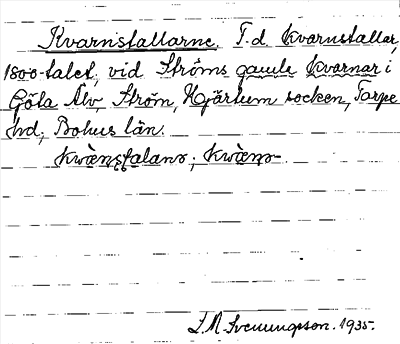 Kvarnstallarne. F.d. Kvarnstallar,
1800-talet, vid Ströms gamle Kvarnar i
Göta Älv, Ström, Hjärtum socken, Torpe
hd, Bohus län.
Kwænstalanə; Kwæna-
J.A. Svenungsson. 1935.